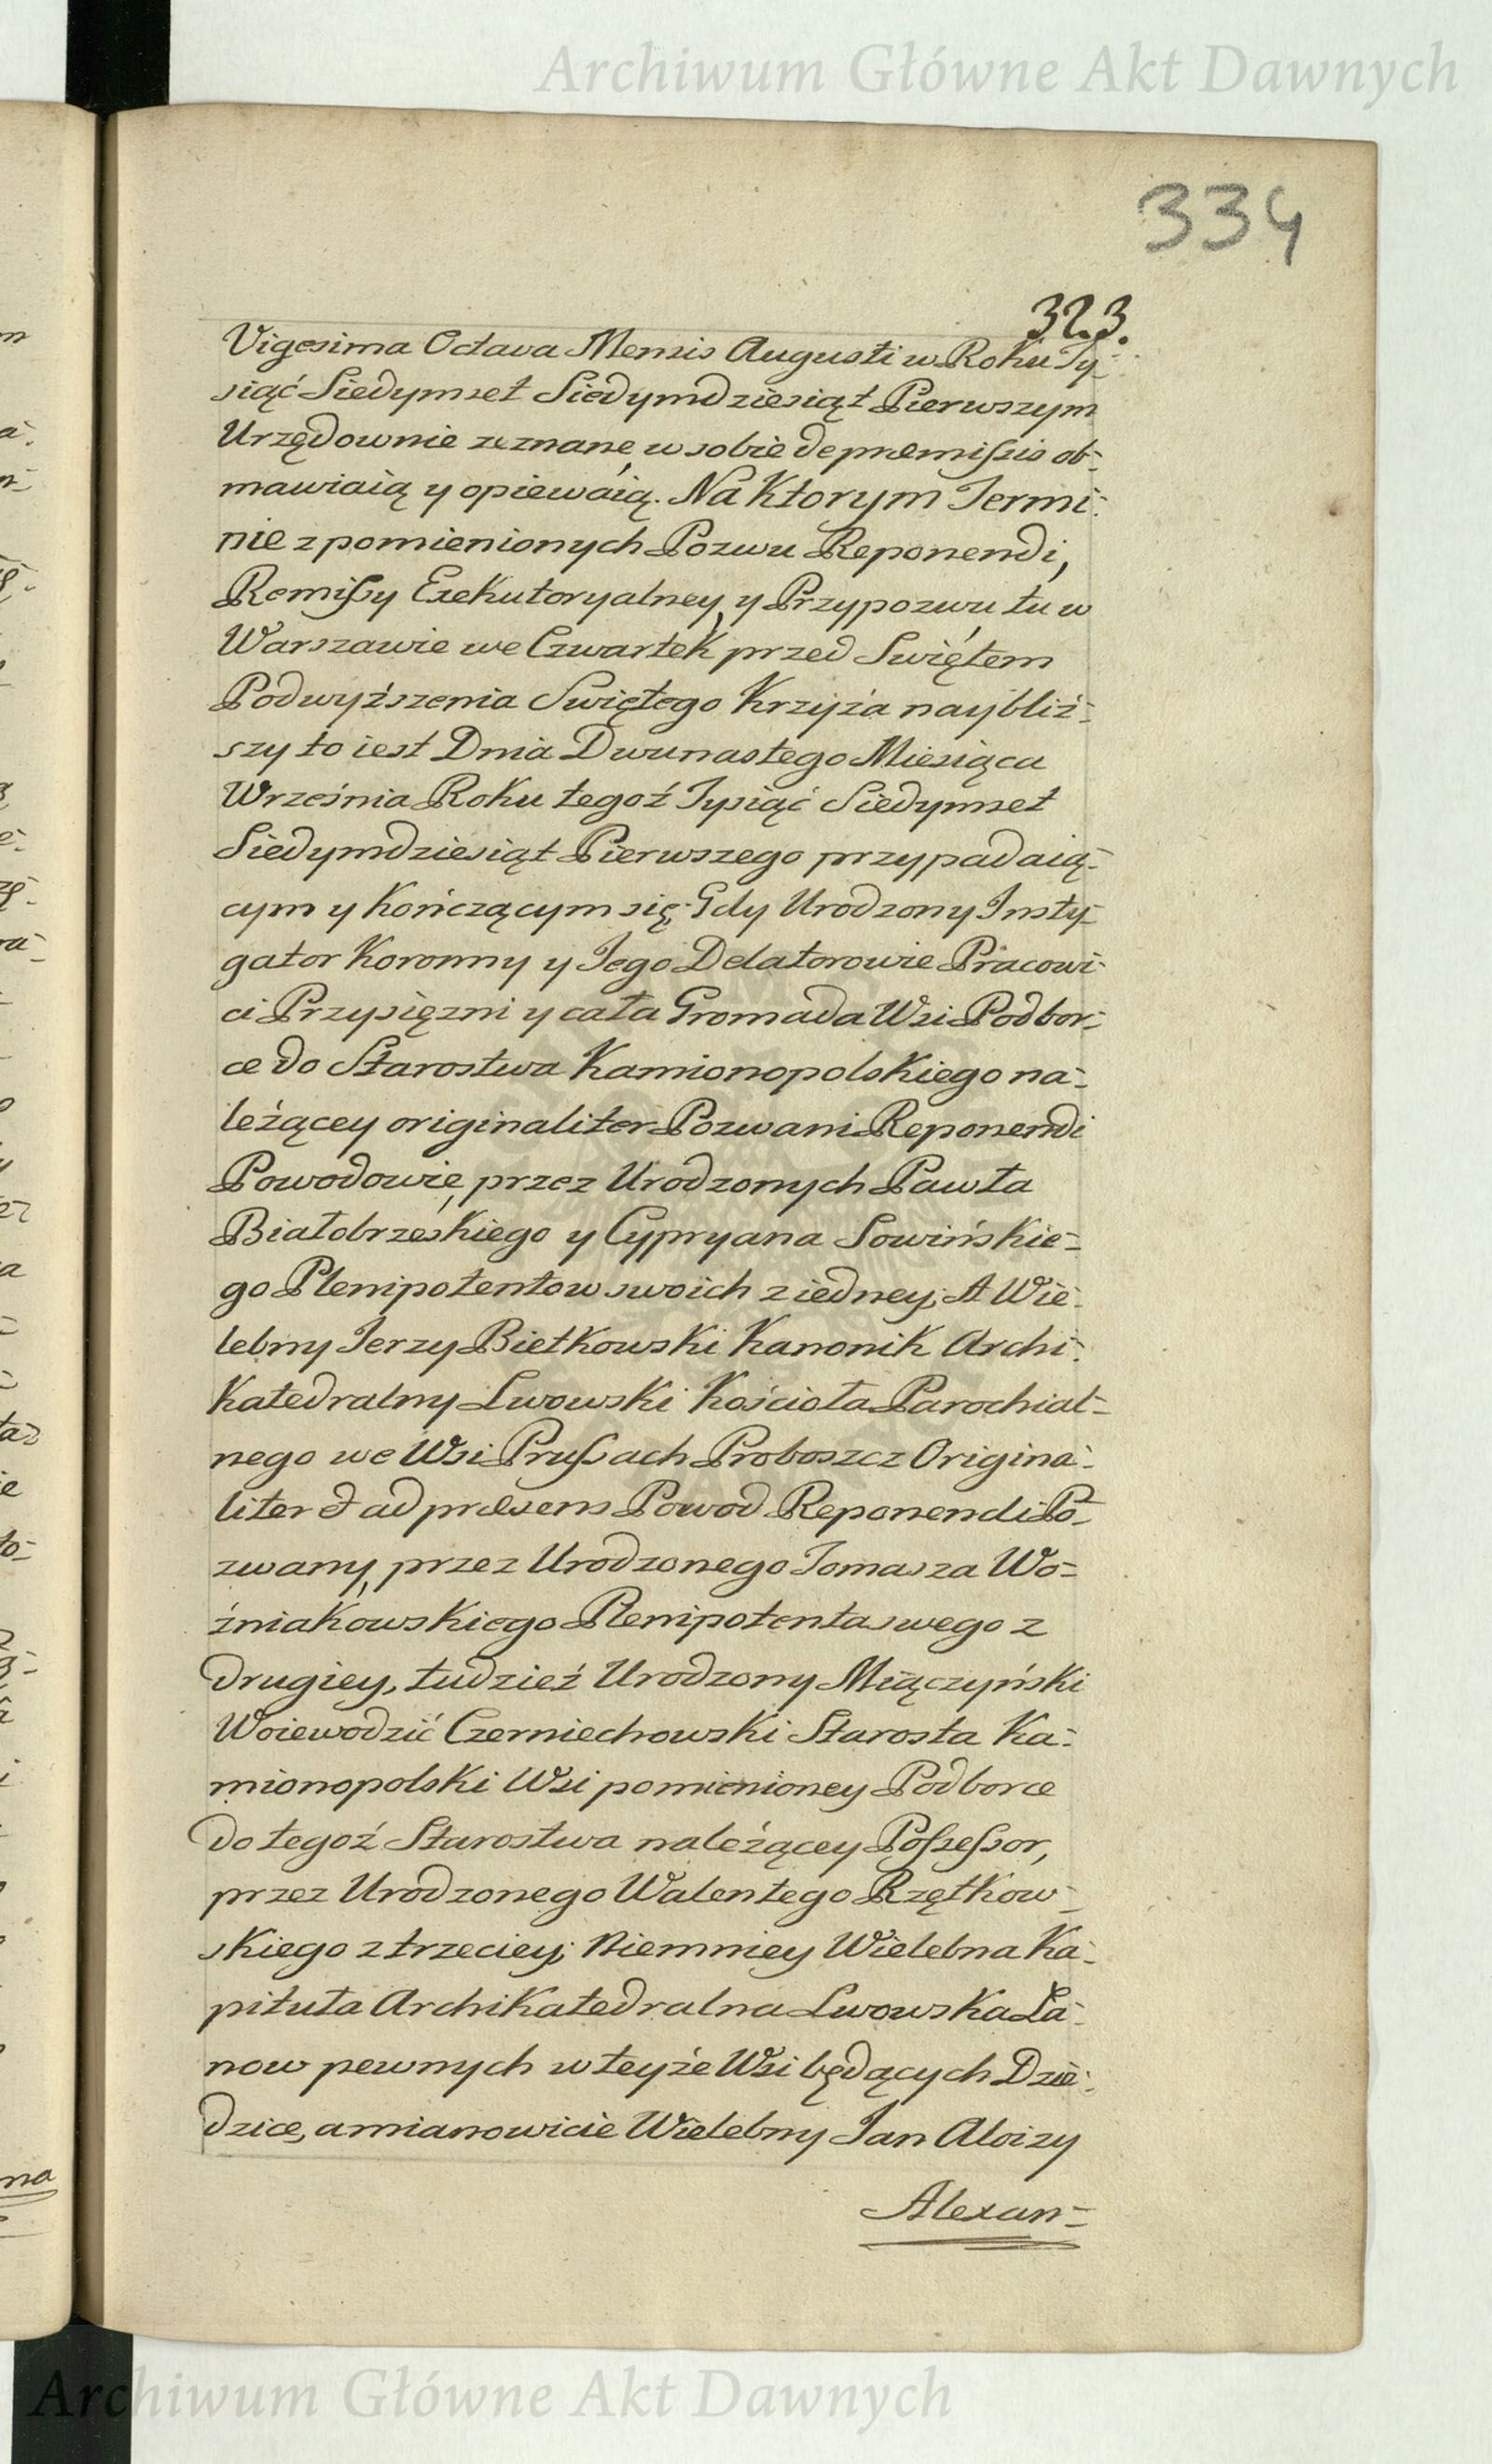 Archiwum Główne Akt Dawnych
334
323.
Vigesima Octava Mensis Augusti w Roku Ty-
siąć Siedymset Siedymdziesiąt Pierwszym
Urzędownie zeznane, w sobie de præmissis ob-
mawiaią y opiewaią. Na Ktorym Termi-
nie z pomienionych Pozwu Reponendi,
Remissy Exekutoryalney, y Przypozwu, tu w
Warszawie we Czwartek przed Swiętem
Podwyższenia Swiętego Krzyża naybliż-
szy to iest Dnia Dwunastego Miesiąca
Września Roku tegoż Tysiąć Siedymset
Siedymdziesiąt Pierwszego przypadaią-
cym y kończącym się; Gdy Urodzony Insty-
gator Koronny y Jego Delatorowie Pracowi-
ci Przysięzni y cała Gromada Wsi Podbor-
ce do Starostwa Kamionopolskiego na-
leżącey originaliter Pozwani Reponendi
Powodowie, przez Urodzonych Pawła
Białobrzeskiego y Cypryana Sowińskie-
go Plenipotentow swoich z iedney; A Wie-
lebny Jerzy Bietkowski Kanonik Archi-
Katedralny Lwowski Kościoła Parochial-
nego we Wsi Prussach Proboszcz Origina-
liter & ad præsens Powod Reponendi Po-
zwany, przez Urodzonego Tomasza Wo-
źniakowskiego Plenipotenta swego z
drugiey, tudzież Urodzony Miączyński
Woiewodzić Czerniechowski Starosta Ka-
mionopolski Wsi pomienioney Podborce
do tegoż Starostwa należącey Possessor,
przez Urodzonego Walentego Rzętkow-
skiego z trzeciey; Niemniey Wielebna Ka-
pituła Archikatedralna Lwowska Ła-
now pewnych w teyże Wsi będących Dzie-
dzice, a mianowicie Wielebny Jan Aloizy
Alexan-
Archiwum Główne Akt Dawnych